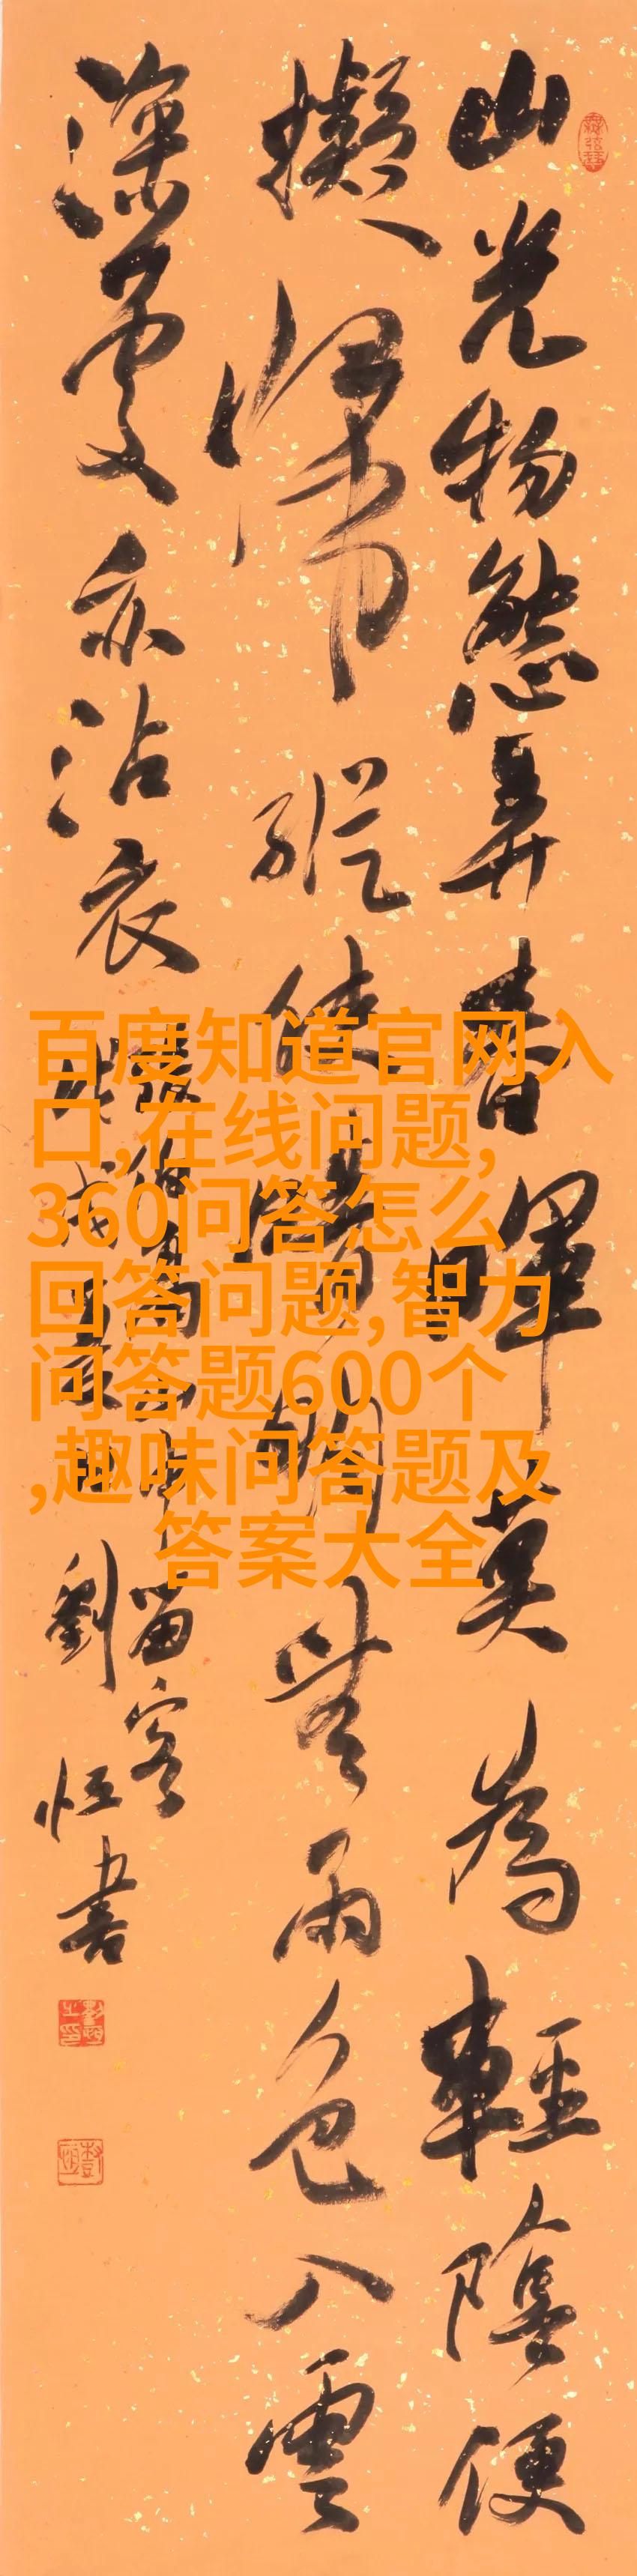 山光物態弄春暉莫為輕陰便
擬歸縱使晴明無雨色入雲
深處亦沾衣
張伯高山中留客
劉恒書
百度知道官网入
口,在线问题,
360问答怎么
回答问题,智力
问答题600个
,趣味问答题及
答案大全